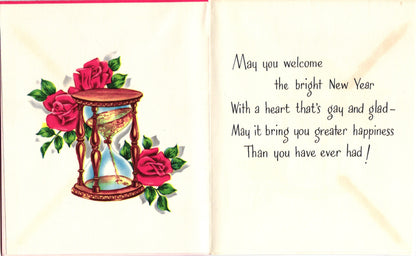 May you welcome
the bright New Year
With a heart that's gay and glad—
May it bring you greater happiness
Than you have ever had!